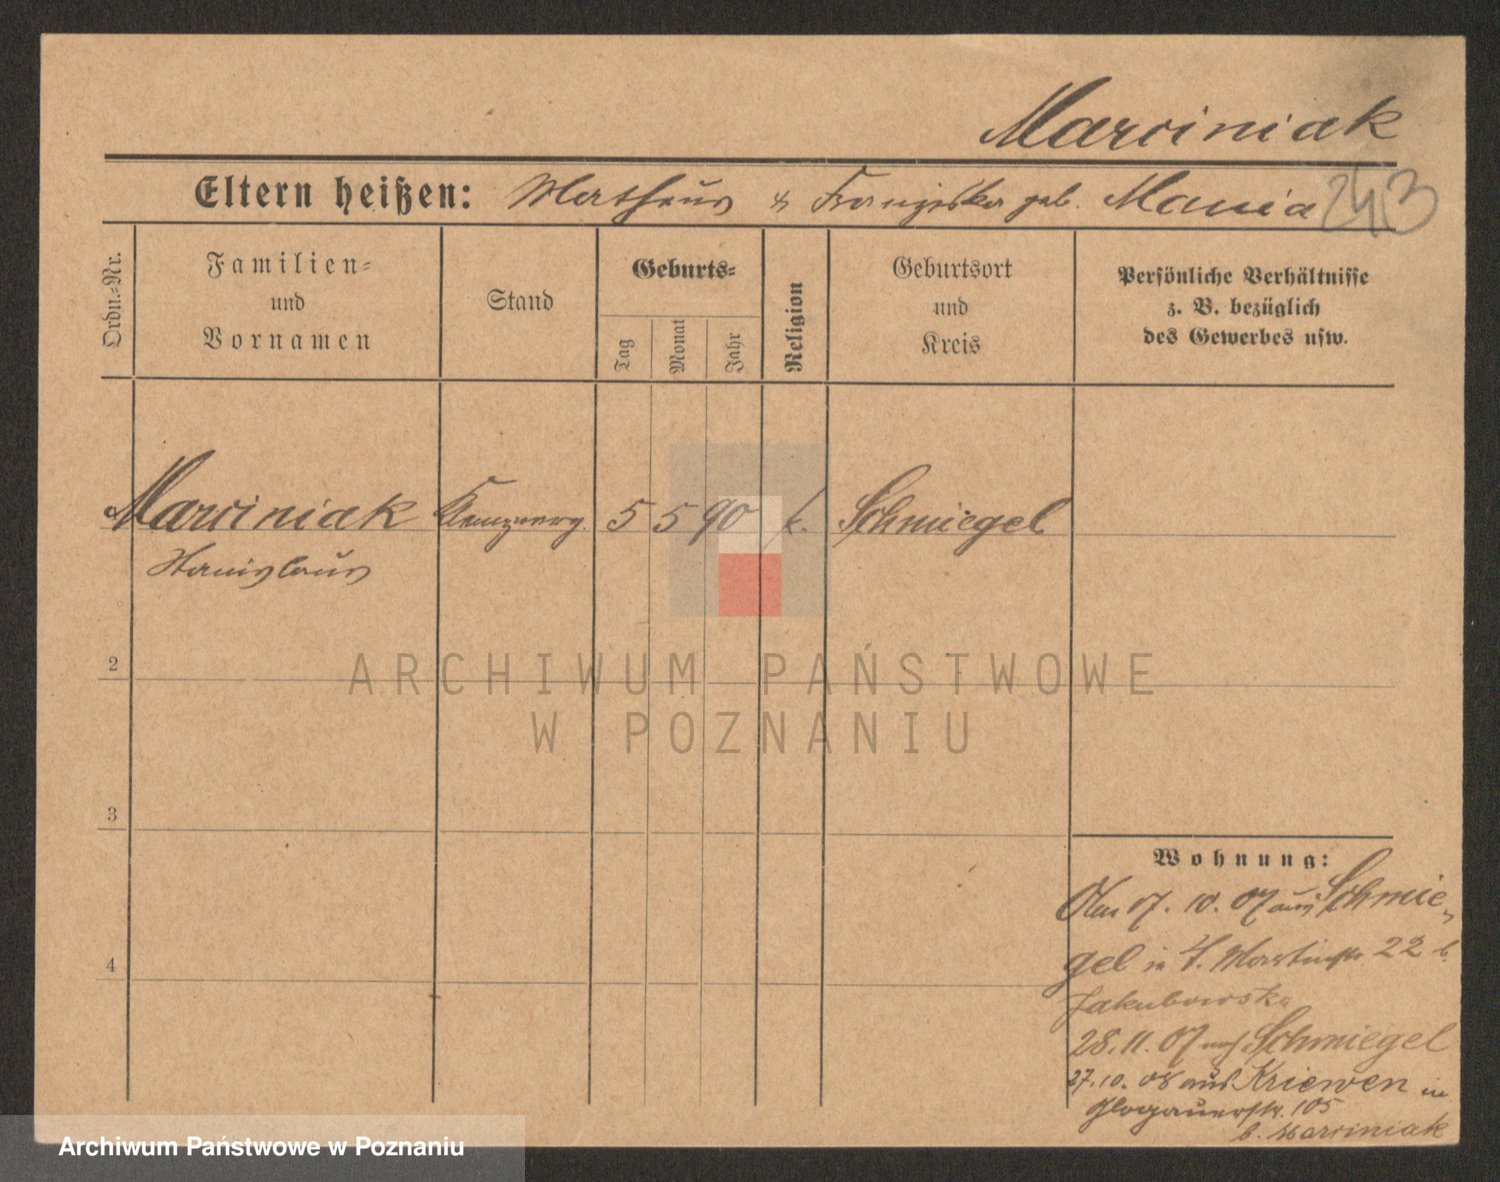 Marciniak
Eltern heißen: Mathäus & Franziska geb. Mania
243
Ordn.-Nr.
Familien-
und
Vornamen
Stand
Geburts-
Tag
Monat
Jahr
Religion
Geburtsort
und
Kreis
Persönliche Verhältnisse
z. B. bezüglich
des Gewerbes usw.
Marciniak 5 5 90 k. Schmiegel
Stanislaus
2
ARCHIWUM PAŃSTWOWE
W POZNANIU
3
Wohnung:
07. 10. 07 aus Schmie-
gel in Martinstr. 22 b.
4
Jakubowska
28. 11. 07 nach Schmiegel
27. 10. 08 aus Kriewen in
Glogauerstr. 105
b. Marciniak
Archiwum Państwowe w Poznaniu